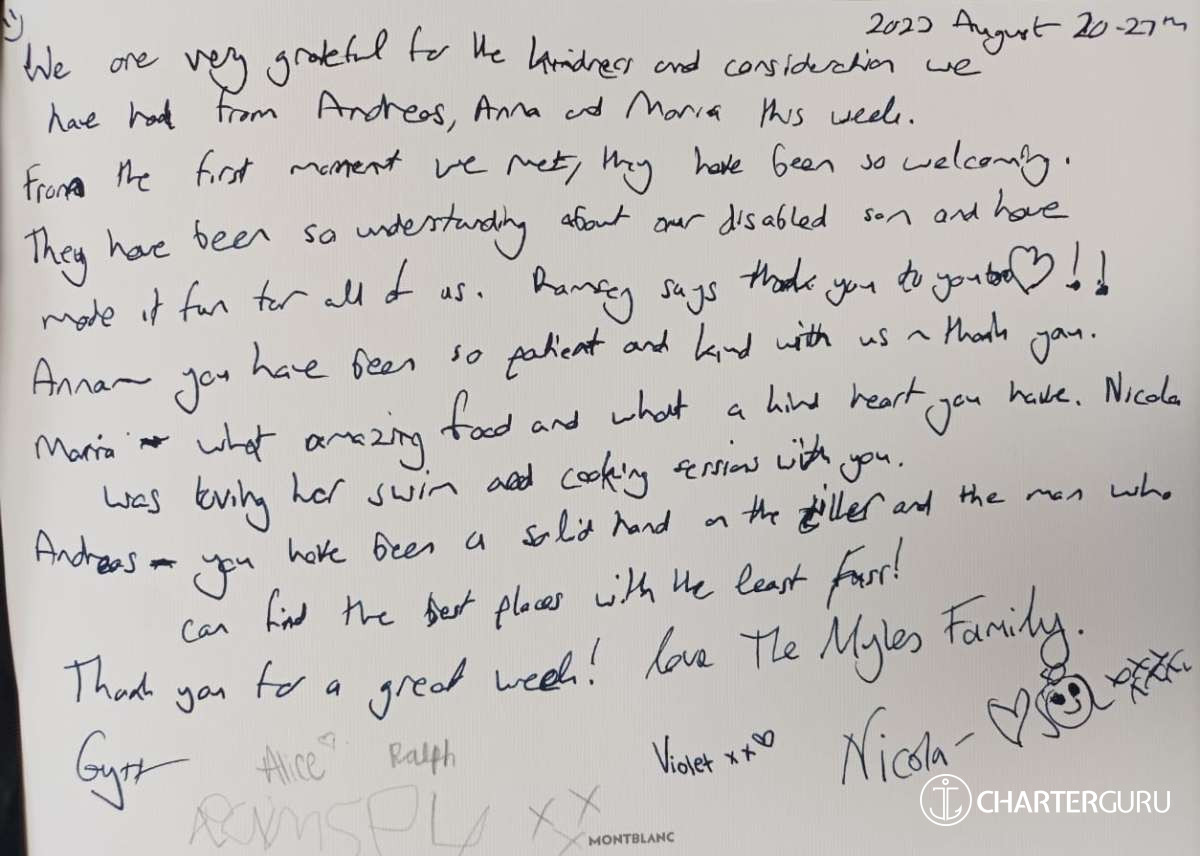 2022 August 20-27th
We are very grateful for the kindness and consideration we
have had from Andreas, Anna and Maria this week.
From the first moment we met, they have been so welcoming.
They have been so understanding about our disabled son and have
made it fun for all of us. Ramsey says thank you to you ♡!!
Anna - you have been so patient and kind with us ~ thank you.
Maria - what amazing food and what a kind heart you have. Nicola
was loving her swim and cooking sessions with you.
Andreas - you have been a solid hand on the tiller and the man who
can find the best places with the least fuss!
Thank you for a great week! love The Myles Family.
Alice ♡ Ralph Violet xx♡ Nicola -
xxx
MONTBLANC
CHARTERGURU